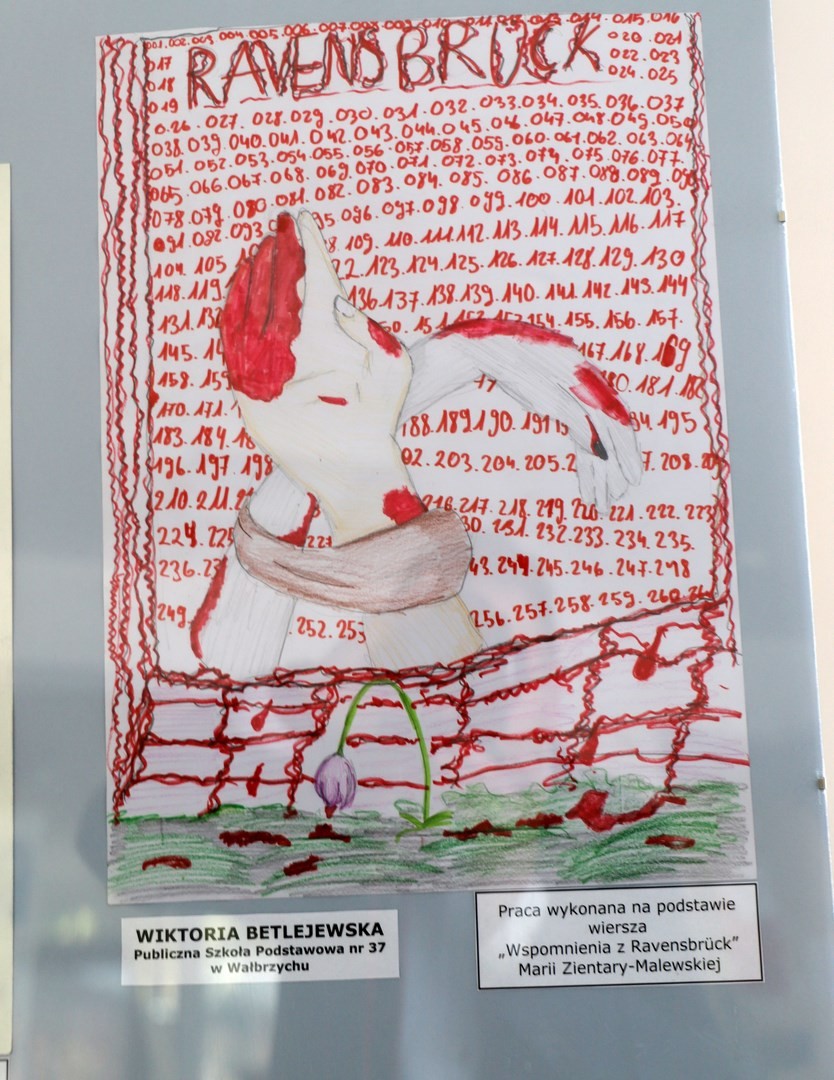 001.002.003 004.005.006.007.008.009.010.011.012.013.014.015.016
017 RAVENSBRÜCK 020.021
018 022.023
019 024.025
026.027.028.029.030.031.032.033.034.035.036.037
038.039.040.041.042.043.044.045.046.047.048.049.050
051.052.053.054.055.056.057.058.059.060.061.062.063.064
065.066.067.068.069.070.071.072.073.074.075.076.077.
078.079.080.081.082.083.084.085.086.087.088.089.090
091.092.093 95 096.097.098.099.100.101.102.103.
104.105 8.109.110.111.112.113.114.115.116.117
118.119 22.123.124.125.126.127.128.129.130
131.132 136.137.138.139.140.141.142.143.144
145.14 50.151.152.153.154.155.156.157.
158.159 167.168.169
170.171. 180.181.182
183.184.18 188.189.190.191 194.195
196.197.198 02.203.204.205.2 7.208.209
210.211.21 216.217.218.219.220.221.222.223
224.225 227 30.231.232.233.234.235.
236.23 43.244.245.246.247.248
249. .252.253 256.257.258.259.260.26
WIKTORIA BETLEJEWSKA
Publiczna Szkoła Podstawowa nr 37
w Wałbrzychu
Praca wykonana na podstawie
wiersza
„Wspomnienia z Ravensbrück”
Marii Zientary-Malewskiej